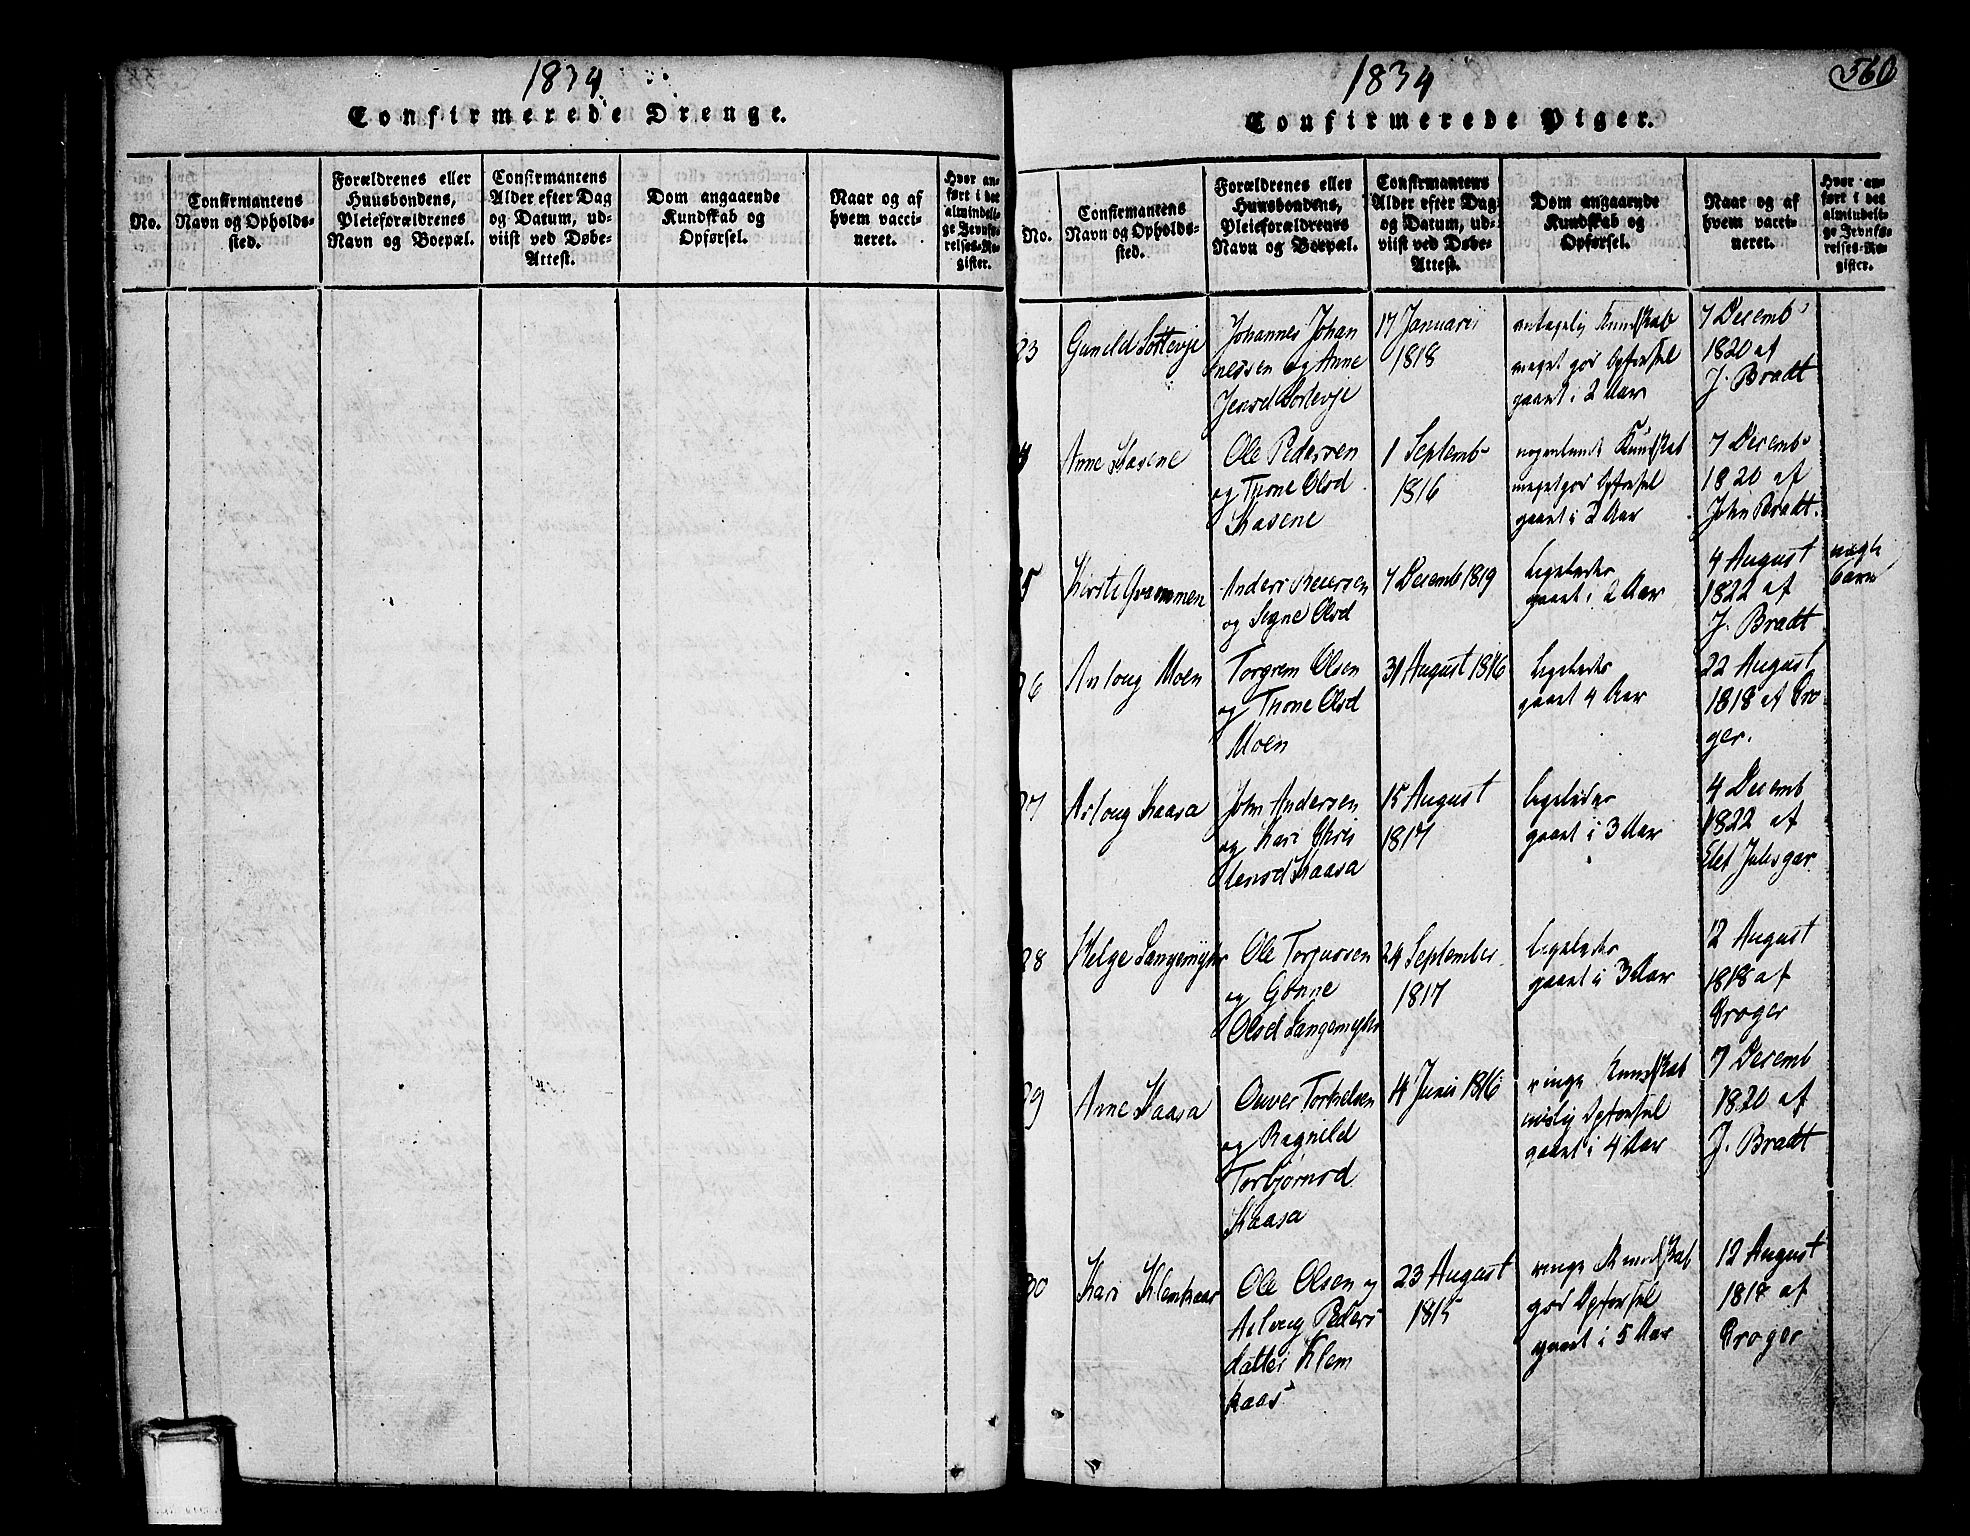 1834
Confirmerede Drenge.
No.
Confirmantens
Navn og Opholds-
sted.
Forældrenes eller
Huusbondens,
Pleieforældrenes
Navn og Boepæl.
Confirmantens
Alder efter Dag
og Datum, ud-
viist ved Døbe-
Attest.
Dom angaaende
Kundskab og
Opførsel.
Naar og af
hvem vacci-
neret.
Hvor an-
ført i det
almindeli-
ge Jevnfø-
relses-Re-
gister.
1834
560
Confirmerede Piger.
No.
Confirmantens
Navn og Opholds-
sted.
Forældrenes eller
Huusbondens,
Pleieforældrenes
Navn og Boepæl.
Confirmantens
Alder efter Dag
og Datum, ud-
viist ved Døbe-
Attest.
Dom angaaende
Kundskab og
Opførsel.
Naar og af
hvem vacci-
neret.
Hvor an-
ført i det
almindeli-
ge Jevnfø-
relses-Re-
gister.
23
Guneld
Johannes Johan
nessen og Anne
Jensd
17 Januari
1818
antagelig Kundskab
meget god Opførsel
gaaet i 2 Aar
7 Decemb
1820 af
J. Bradt
Anne Kasene
Ole Pedersen
og Thone Olsd
Kasene
1 Septemb
1816
nogenlunde Kundskab
meget god Opførsel
gaaet i 2 Aar
7 Decemb
1820 af
John Bradt.
25
Anders
og Signe Olsd
7 Decemb 1819
ligeledes
gaaet i 2 Aar
4 August
1822 af
J. Bradt
uægte
barn
26
Aaloug Moen
Torgrem Olsen
og Thone Olsd
Moen
31 August 1816
ligeledes
gaaet 4 Aar
22 August
1818 af Cro
ger.
27
Asloug Kaasa
John Andersen
og Kari Chris
tensd Kaasa
15 August
1817
ligeledes
gaaet i 3 Aar
4 Decemb
1822 af
28
Helge Langemyhr
Ole Torjussen
og Gonne
Olsd Langemyhr
24 September
1817
ligeledes
gaaet i 3 Aar
12 August
1818 af
Croger
29
Anne Kaasa
Ouver Torkelsen
og Ragnild
Torbjørnsd
Kaasa
4 Junii 1816
ringe Kundskab
Opførsel
gaaet i 4 Aar
7 Decemb
1820 af
J. Bradt
30
Kari Klemkaas
Ole Olsen og
Asloug Peders
datter Klem
kaas
23 August
1815
ringe Kundskab
god Opførsel
gaaet i 5 Aar
12 August
1818 af
Croger